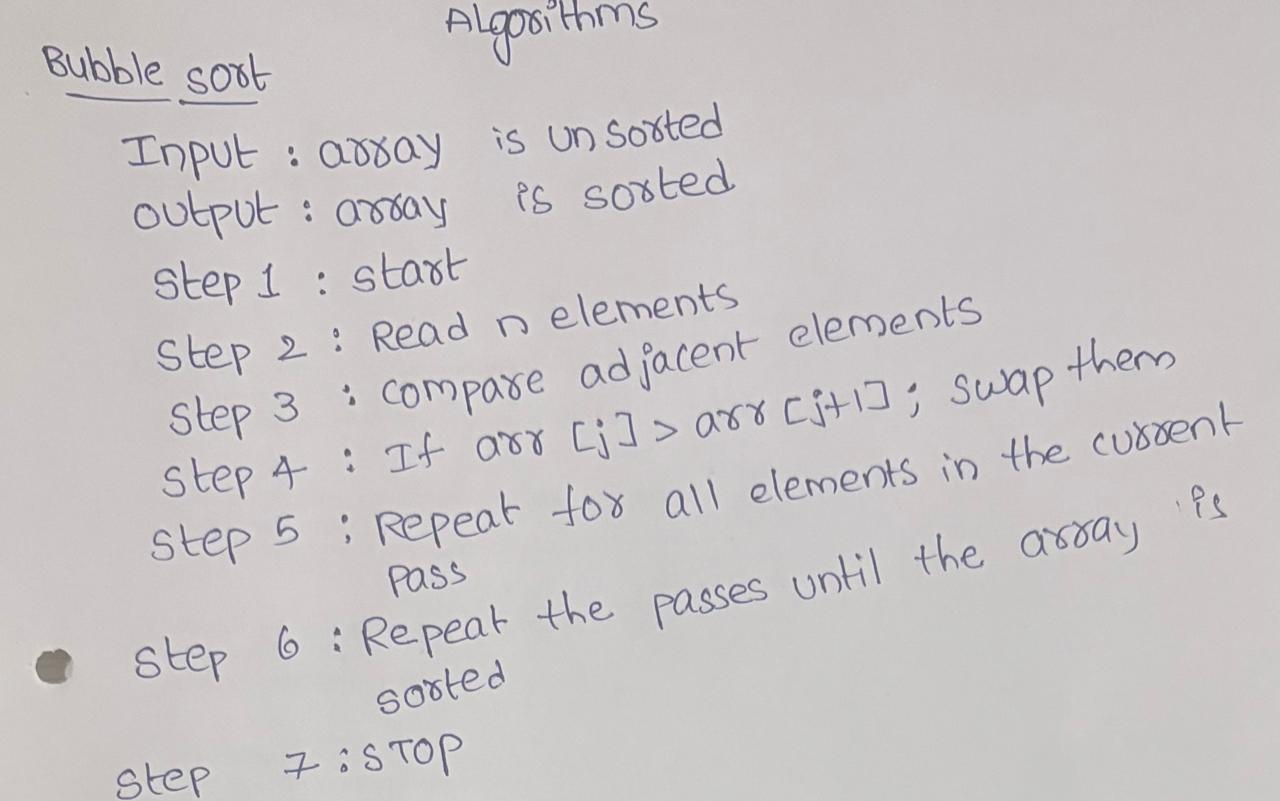 Algorithms
Bubble sort
Input : array is unsorted
output : array is sorted
Step 1 : start
Step 2 : Read n elements
Step 3 : compare adjacent elements
Step 4 : If arr [j] > arr [j+1] ; swap them
Step 5 : Repeat for all elements in the current
pass
Step 6 : Repeat the passes until the array is
sorted
Step 7 : STOP